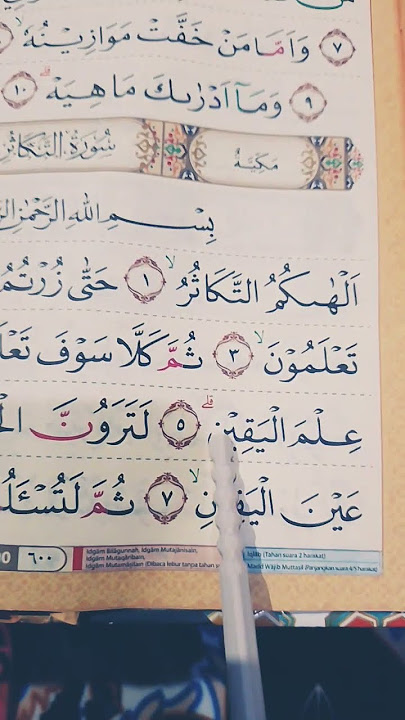 وَاَمَّا مَنْ خَفَّتْ مَوَازِيْنُهٗ ٧
وَمَآ اَدْرٰىكَ مَا هِيَهْ ١٠ ٩
مَكِّيَّةٌ سُوْرَةُ التَّكَاثُرِ
بِسْمِ اللّٰهِ الرَّحْمٰنِ
اَلْهٰىكُمُ التَّكَاثُرُ ١ حَتّٰى زُرْتُمُ
تَعْلَمُوْنَ ٣ ثُمَّ كَلَّا سَوْفَ
عِلْمَ الْيَقِيْنِ ٥ لَتَرَوُنَّ
عَيْنَ الْيَقِيْنِ ٧ ثُمَّ
٦٠٠
Idgām Bilāgunnah, Idgām Mutajānisain,
Idgām Mutaqāribain,
Idgām Mutamāṡilain (Dibaca lebur tanpa tahan
Iqlāb (Tahan suara 2 harakat)
Madd Wājib Muttaṣil (Panjangkan suara 4/5 harakat)